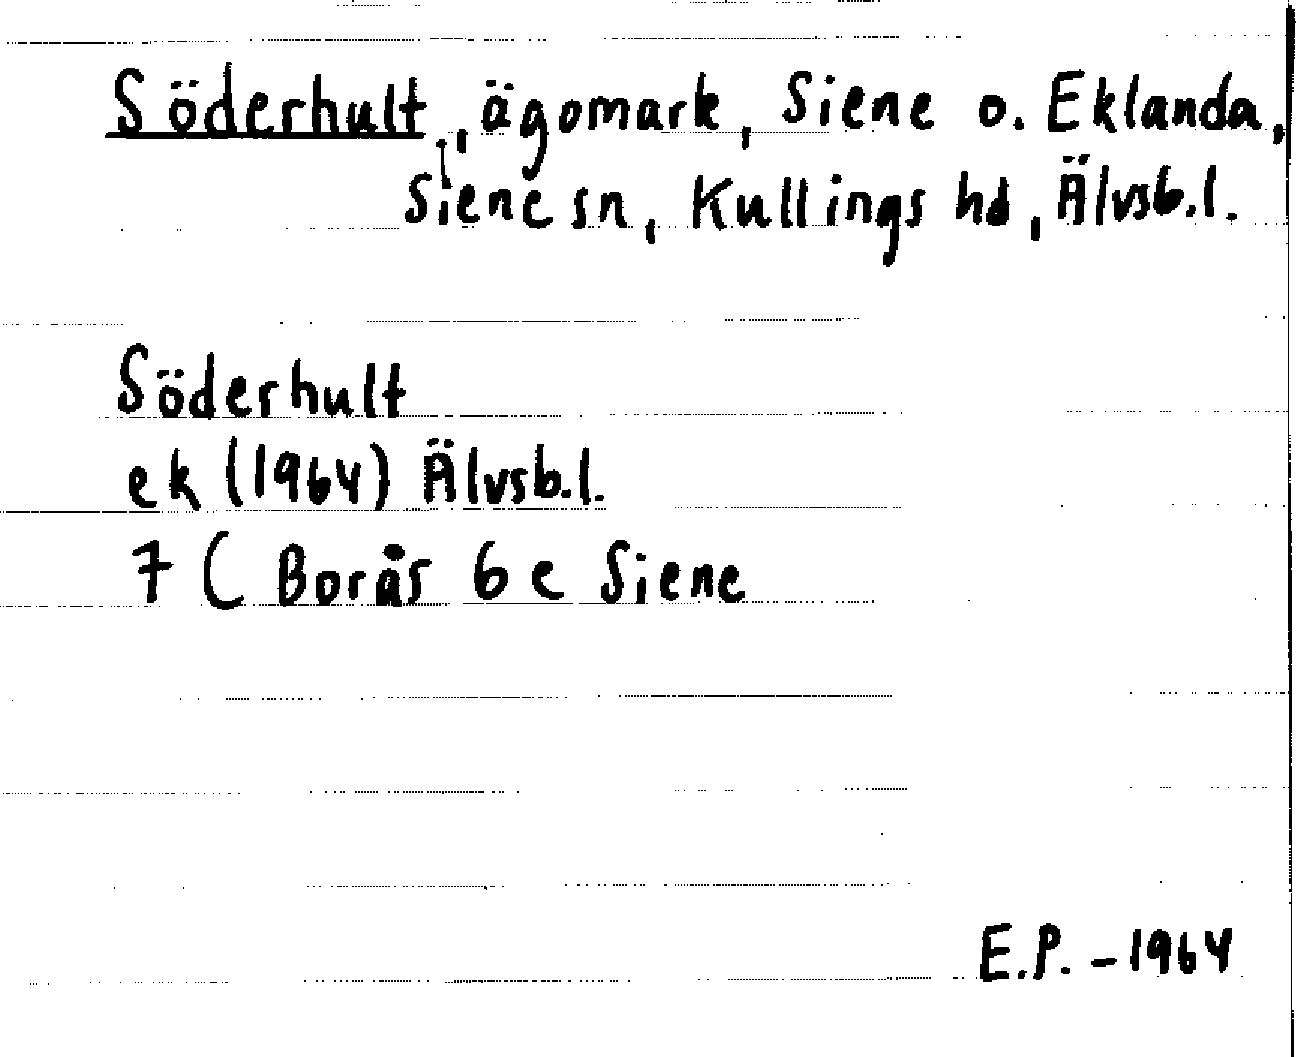 Söderhult, ägomark, Siene o. Eklanda,
Siene sn, Kullings hd, Älvsb.l.
Söderhult
ek (1964) Älvsb.l.
7 C Borås 6 c Siene
E.P. - 1964